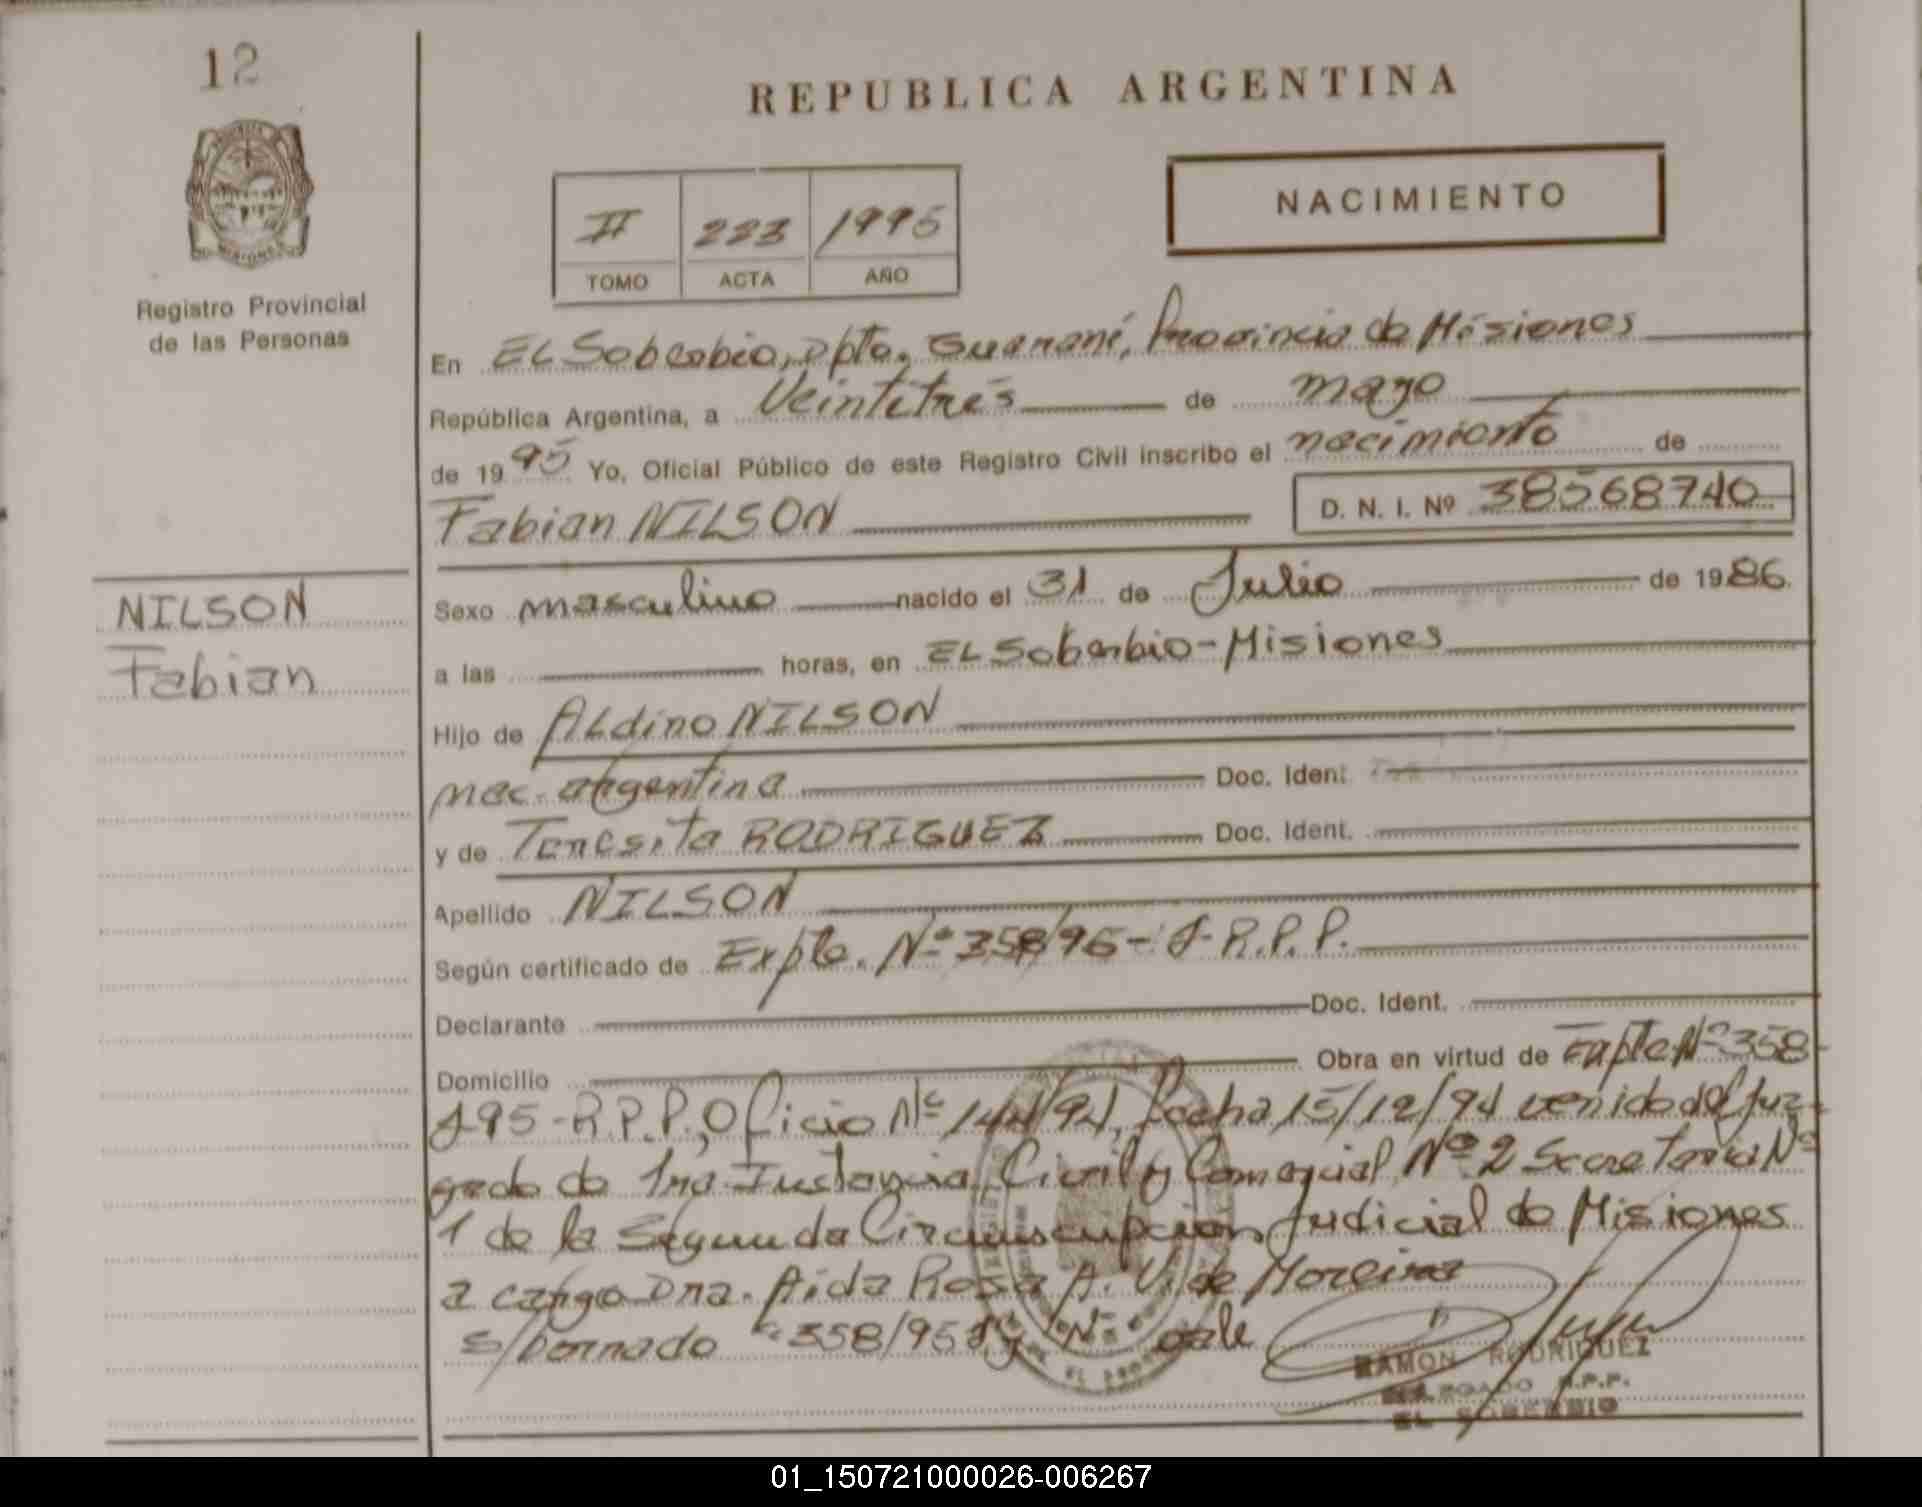 12
REPUBLICA ARGENTINA
NACIMIENTO
II 223 1995
TOMO ACTA AÑO
Registro Provincial
de las Personas
En El Soberbio, Dpto. Guaraní, Provincia de Misiones
República Argentina, a Veintitrés de mayo
de 1995 Yo, Oficial Público de este Registro Civil inscribo el nacimiento de
Fabian NILSON D. N. I. Nº 38568740
NILSON
Fabian
Sexo masculino nacido el 31 de Julio de 1986.
a las horas, en El Soberbio - Misiones
Hijo de Aldino NILSON
nac. argentina Doc. Ident.
y de Teresita RODRIGUEZ Doc. Ident.
Apellido NILSON
Según certificado de Expte. Nº 358/95 - R.P.P.
Declarante Doc. Ident.
Domicilio Obra en virtud de Expte Nº 358
195 - R.P.P., Oficio Nº 144/94, fecha 15/12/94 venido del Juz
gado de 1ra Instancia Civil y Comercial Nº 2 Secretaria Nº
1 de la Segunda Circunscripción Judicial de Misiones
a cargo Dra. Aida Rosa A. V. de Moreira
s/borrado 358/95 y Nº vale
RAMON RODRIGUEZ
DELEGADO R.P.P.
EL SOBERBIO
01_150721000026-006267